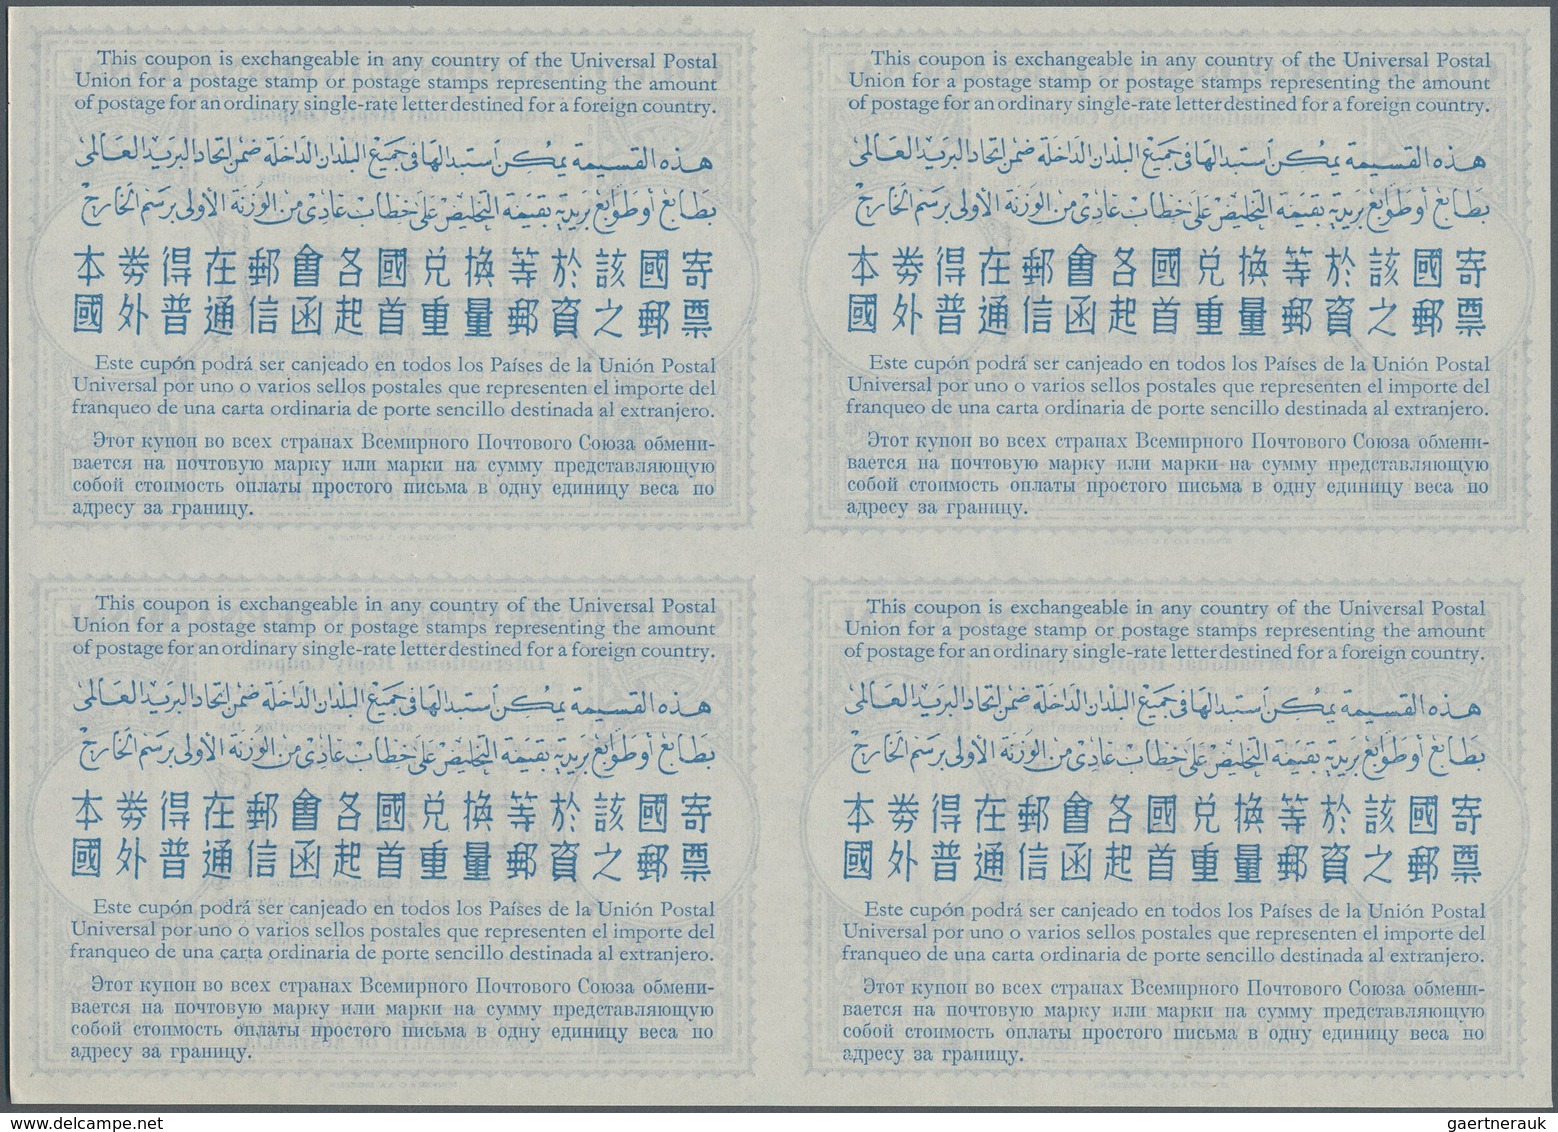 This coupon is exchangeable in any country of the Universal Postal
Union for a postage stamp or postage stamps representing the amount
of postage for an ordinary single-rate letter destined for a foreign country.
هذه القسيمة يمكن استبدالها في جميع البلدان الداخلة ضمن اتحاد البريد العالمى
بطابع أو طوابع بريدية بقيمة التخليص على خطاب عادى من الوزنة الأولى برسم الخارج
本劵得在郵會各國兌換等於該國寄
國外普通信函起首重量郵資之郵票
Este cupón podrá ser canjeado en todos los Países de la Unión Postal
Universal por uno o varios sellos postales que representen el importe del
franqueo de una carta ordinaria de porte sencillo destinada al extranjero.
Этот купон во всех странах Всемирного Почтового Союза обмени-
вается на почтовую марку или марки на сумму представляющую
собой стоимость оплаты простого письма в одну единицу веса по
адресу за границу.
This coupon is exchangeable in any country of the Universal Postal
Union for a postage stamp or postage stamps representing the amount
of postage for an ordinary single-rate letter destined for a foreign country.
هذه القسيمة يمكن استبدالها في جميع البلدان الداخلة ضمن اتحاد البريد العالمى
بطابع أو طوابع بريدية بقيمة التخليص على خطاب عادى من الوزنة الأولى برسم الخارج
本劵得在郵會各國兌換等於該國寄
國外普通信函起首重量郵資之郵票
Este cupón podrá ser canjeado en todos los Países de la Unión Postal
Universal por uno o varios sellos postales que representen el importe del
franqueo de una carta ordinaria de porte sencillo destinada al extranjero.
Этот купон во всех странах Всемирного Почтового Союза обмени-
вается на почтовую марку или марки на сумму представляющую
собой стоимость оплаты простого письма в одну единицу веса по
адресу за границу.
This coupon is exchangeable in any country of the Universal Postal
Union for a postage stamp or postage stamps representing the amount
of postage for an ordinary single-rate letter destined for a foreign country.
هذه القسيمة يمكن استبدالها في جميع البلدان الداخلة ضمن اتحاد البريد العالمى
بطابع أو طوابع بريدية بقيمة التخليص على خطاب عادى من الوزنة الأولى برسم الخارج
本劵得在郵會各國兌換等於該國寄
國外普通信函起首重量郵資之郵票
Este cupón podrá ser canjeado en todos los Países de la Unión Postal
Universal por uno o varios sellos postales que representen el importe del
franqueo de una carta ordinaria de porte sencillo destinada al extranjero.
Этот купон во всех странах Всемирного Почтового Союза обмени-
вается на почтовую марку или марки на сумму представляющую
собой стоимость оплаты простого письма в одну единицу веса по
адресу за границу.
This coupon is exchangeable in any country of the Universal Postal
Union for a postage stamp or postage stamps representing the amount
of postage for an ordinary single-rate letter destined for a foreign country.
هذه القسيمة يمكن استبدالها في جميع البلدان الداخلة ضمن اتحاد البريد العالمى
بطابع أو طوابع بريدية بقيمة التخليص على خطاب عادى من الوزنة الأولى برسم الخارج
本劵得在郵會各國兌換等於該國寄
國外普通信函起首重量郵資之郵票
Este cupón podrá ser canjeado en todos los Países de la Unión Postal
Universal por uno o varios sellos postales que representen el importe del
franqueo de una carta ordinaria de porte sencillo destinada al extranjero.
Этот купон во всех странах Всемирного Почтового Союза обмени-
вается на почтовую марку или марки на сумму представляющую
собой стоимость оплаты простого письма в одну единицу веса по
адресу за границу.
www.delcampe.net
gaertnerauk